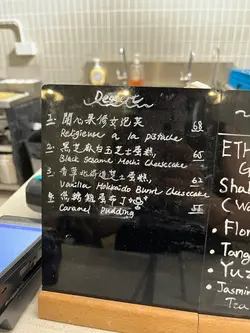 Dessert
1. 開心果修女泡芙 68
Religieuse a la pistache
2. 黑芝麻白玉芝士蛋糕 65
Black Sesame Mochi Cheesecake
3. 香草北海道芝士蛋糕 62
Vanilla Hokkaido Burnt Cheesecake
4. 焦糖雞蛋布丁
Caramel Pudding 55
ETH
Sha
(W
Flor
Tang
Yuz
Jasmin
Tea